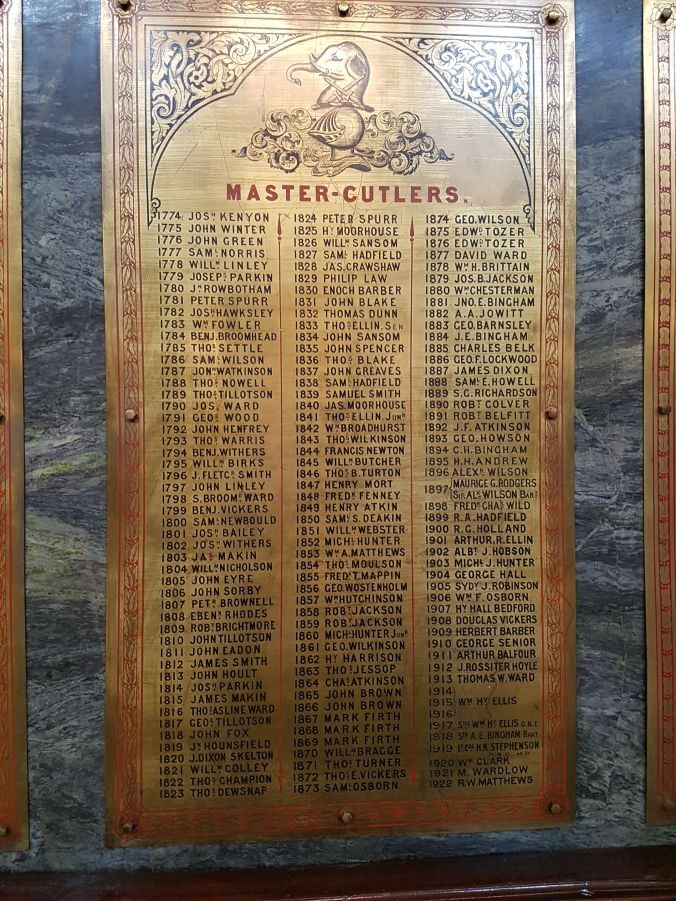 MASTER-CUTLERS.
1774 JOSH KENYON
1775 JOHN WINTER
1776 JOHN GREEN
1777 SAML NORRIS
1778 WILLM LINLEY
1779 JOSEPH PARKIN
1780 JN ROWBOTHAM
1781 PETER SPURR
1782 JOSH HAWKSLEY
1783 WM FOWLER
1784 BENJ. BROOMHEAD
1785 THOS SETTLE
1786 SAML WILSON
1787 JONN WATKINSON
1788 THOS NOWELL
1789 THOS TILLOTSON
1790 JOSH WARD
1791 GEOE WOOD
1792 JOHN HENFREY
1793 THOS WARRIS
1794 BENJ. WITHERS
1795 WILLM BIRKS
1796 J. FLETCR SMITH
1797 JOHN LINLEY
1798 S. BROOMD WARD
1799 BENJ. VICKERS
1800 SAML NEWBOULD
1801 JOSH BAILEY
1802 JOSH WITHERS
1803 JAS MAKIN
1804 WILLM NICHOLSON
1805 JOHN EYRE
1806 JOHN SORBY
1807 PETR BROWNELL
1808 EBENR RHODES
1809 ROBT BRIGHTMORE
1810 JOHN TILLOTSON
1811 JOHN EADON
1812 JAMES SMITH
1813 JOHN HOULT
1814 JOSH PARKIN
1815 JAMES MAKIN
1816 THOS ASLINE WARD
1817 GEOE TILLOTSON
1818 JOHN FOX
1819 JN HOUNSFIELD
1820 J. DIXON SKELTON
1821 WILLM COLLEY
1822 THOS CHAMPION
1823 THOS DEWSNAP
1824 PETER SPURR
1825 HY MOORHOUSE
1826 WILLM SANSOM
1827 SAML HADFIELD
1828 JAS. CRAWSHAW
1829 PHILIP LAW
1830 ENOCH BARBER
1831 JOHN BLAKE
1832 THOMAS DUNN
1833 THOS ELLIN. SEN
1834 JOHN SANSOM
1835 JOHN SPENCER
1836 THOS BLAKE
1837 JOHN GREAVES
1838 SAML HADFIELD
1839 SAMUEL SMITH
1840 JAS. MOORHOUSE
1841 THOS ELLIN. JUNR
1842 WM BROADHURST
1843 THOS WILKINSON
1844 FRANCIS NEWTON
1845 WILLM BUTCHER
1846 THOS B. TURTON
1847 HENRY MORT
1848 FREDK FENNEY
1849 HENRY ATKIN
1850 SAML S. DEAKIN
1851 WILLM WEBSTER
1852 MICHL HUNTER
1853 WM A. MATTHEWS
1854 THOS MOULSON
1855 FREDK T. MAPPIN
1856 GEO. WOSTENHOLM
1857 WM HUTCHINSON
1858 ROBT JACKSON
1859 ROBT JACKSON
1860 MICHL HUNTER JUNR
1861 GEO. WILKINSON
1862 HY HARRISON
1863 THOS JESSOP
1864 CHAS ATKINSON
1865 JOHN BROWN
1866 JOHN BROWN
1867 MARK FIRTH
1868 MARK FIRTH
1869 MARK FIRTH
1870 WILLM BRAGGE
1871 THOS TURNER
1872 THOS E. VICKERS
1873 SAML OSBORN
1874 GEO. WILSON
1875 EDWD TOZER
1876 EDWD TOZER
1877 DAVID WARD
1878 WM H. BRITTAIN
1879 JOS. B. JACKSON
1880 WM CHESTERMAN
1881 JNO. E. BINGHAM
1882 A. A. JOWITT
1883 GEO. BARNSLEY
1884 J. E. BINGHAM
1885 CHARLES BELK
1886 GEO. F. LOCKWOOD
1887 JAMES DIXON
1888 SAML E. HOWELL
1889 S. G. RICHARDSON
1890 ROBT COLVER
1891 ROBT BELFITT
1892 J. F. ATKINSON
1893 GEO. HOWSON
1894 C. H. BINGHAM
1895 H. H. ANDREW
1896 ALEXR WILSON
1897 MAURICE G. RODGERS
SIR ALX WILSON BART
1898 FREDK CHAS WILD
1899 R. A. HADFIELD
1900 R. G. HOLLAND
1901 ARTHUR. R. ELLIN
1902 ALBT J. HOBSON
1903 MICHL J. HUNTER
1904 GEORGE HALL
1905 SYDY J. ROBINSON
1906 WM F. OSBORN
1907 HY HALL BEDFORD
1908 DOUGLAS VICKERS
1909 HERBERT BARBER
1910 GEORGE SENIOR
1911 ARTHUR BALFOUR
1912 J. ROSSITER HOYLE
1913 THOMAS W. WARD
1914
1915 WM HY ELLIS
1916
1917 SIR WM HY ELLIS G.B.E.
1918 SIR A. E. BINGHAM BART
1919 LT COL H. K. STEPHENSON
1920 WM CLARK
1921 M. WARDLOW
1922 R. W. MATTHEWS